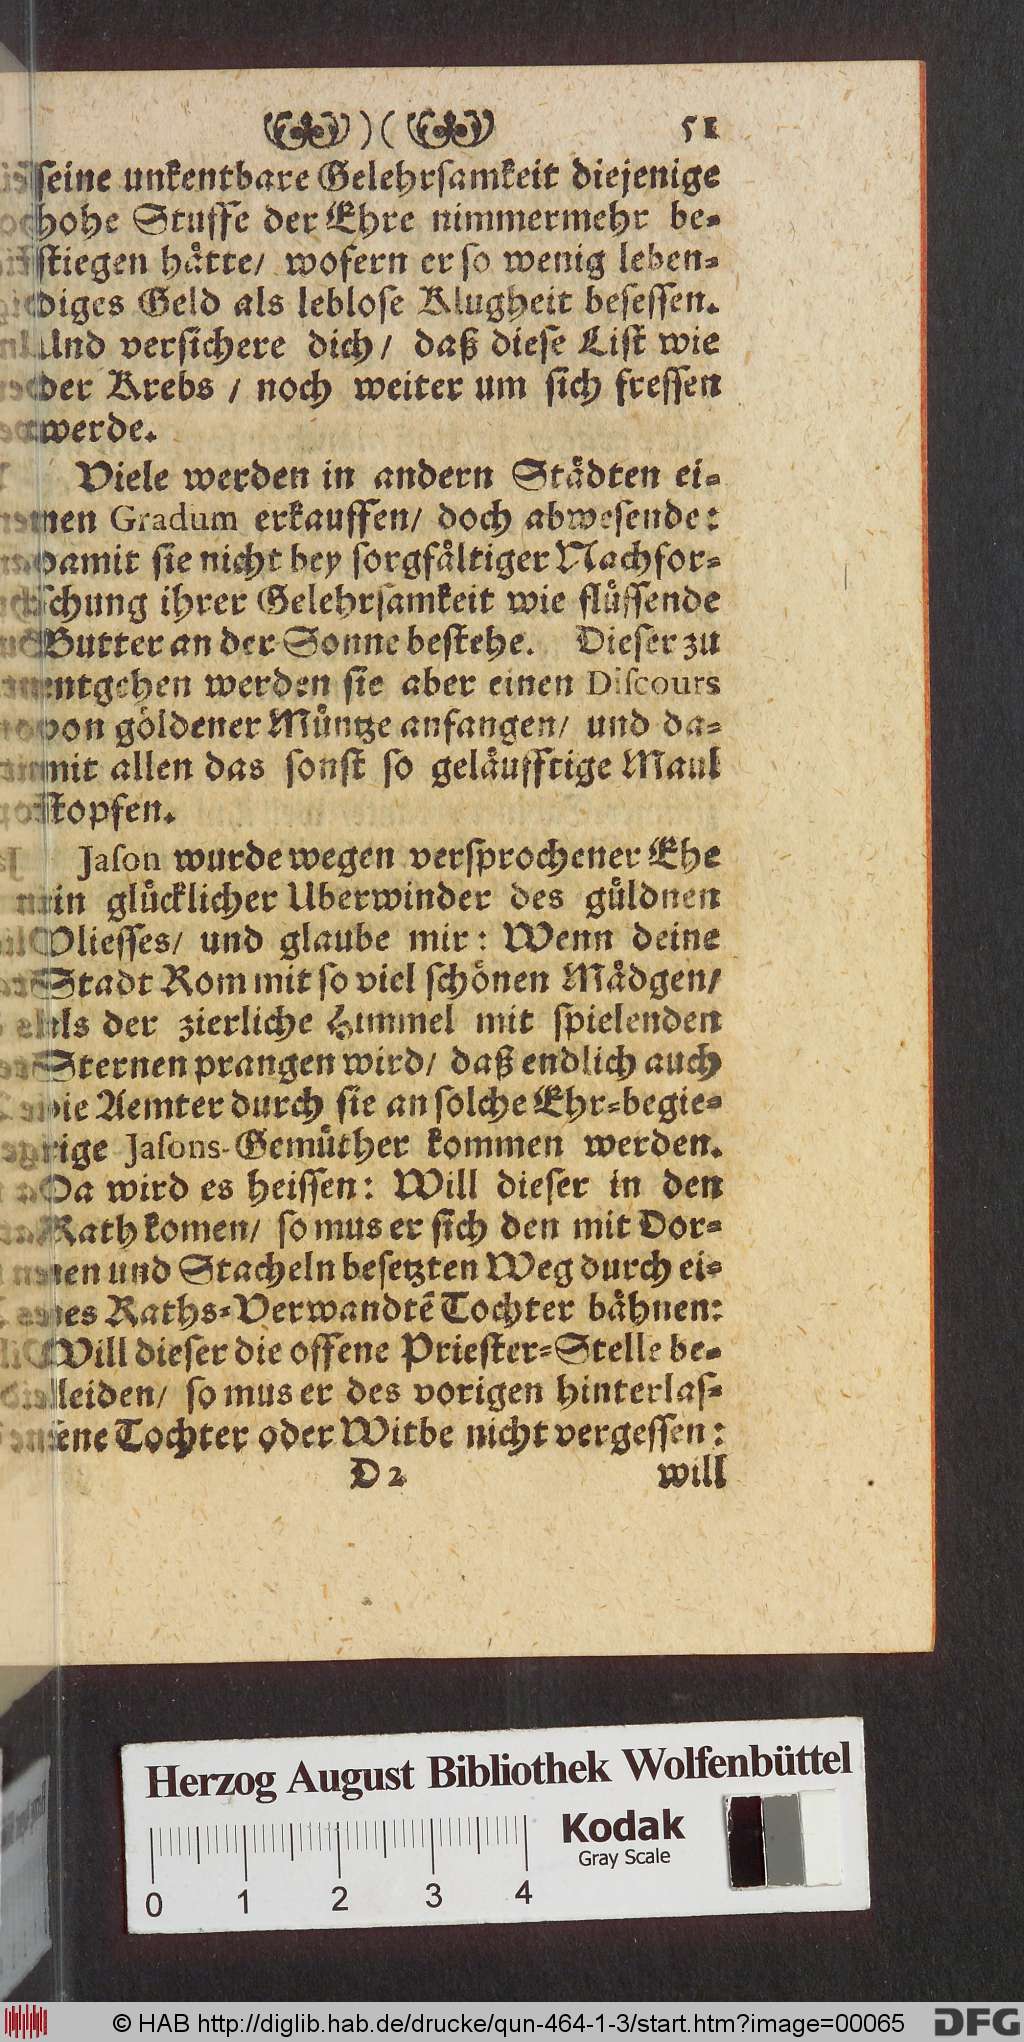 )( 51
seine unkentbare Gelehrsamkeit diejenige
hohe Stuffe der Ehre nimmermehr be-
stiegen hätte/ wofern er so wenig leben-
diges Geld als leblose Klugheit besessen.
Und versichere dich/ daß diese List wie
der Krebs / noch weiter um sich fressen
werde.
Viele werden in andern Städten ei-
nen Gradum erkauffen/ doch abwesende:
damit sie nicht bey sorgfältiger Nachfor-
schung ihrer Gelehrsamkeit wie flüssende
Butter an der Sonne bestehe. Dieser zu
entgehen werden sie aber einen Discours
von göldener Müntze anfangen/ und da-
mit allen das sonst so geläufftige Maul
stopfen.
Jason wurde wegen versprochener Ehe
ein glücklicher Uberwinder des güldnen
Vliesses/ und glaube mir: Wenn deine
Stadt Rom mit so viel schönen Mädgen/
als der zierliche Himmel mit spielenden
Sternen prangen wird/ daß endlich auch
die Aemter durch sie an solche Ehr-begie-
rige Jasons-Gemüther kommen werden.
Da wird es heissen: Will dieser in den
Rath komen/ so mus er sich den mit Dor-
nen und Stacheln besetzten Weg durch ei-
nes Raths-Verwandtē Tochter bähnen:
Will dieser die offene Priester-Stelle be-
kleiden/ so mus er des vorigen hinterlas-
sene Tochter oder Witbe nicht vergessen:
D 2 will
Herzog August Bibliothek Wolfenbüttel
Kodak
Gray Scale
0 1 2 3 4
© HAB http://diglib.hab.de/drucke/qun-464-1-3/start.htm?image=00065 DFG